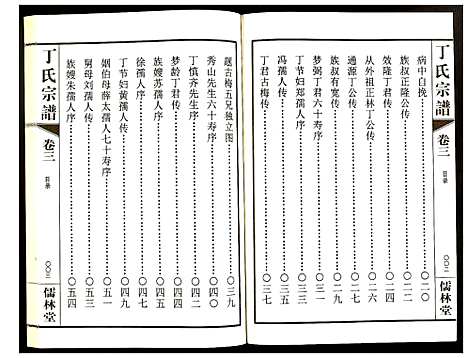 丁氏宗譜
卷三
目录
〇〇二
儒林堂
病中自挽……〇二〇
族叔正隆公传……〇二一
从外祖正林丁公传……〇二二
效隆丁君传……〇二四
通源丁公传……〇二六
族叔有宽传……〇二九
梦弼丁君六十寿序……〇三一
丁节妇郑孺人传……〇三三
冯孺人传……〇三五
丁君古梅传……〇三七
题古梅五兄独立图……〇三九
秀山先生六十寿序……〇四〇
丁慎齐先生序……〇四二
梦龄丁君传……〇四四
族嫂苏孺人序……〇四六
徐孺人序……〇四七
丁节妇黄孺人传……〇四九
姻伯母薛太孺人七十寿序……〇五一
舅母刘孺人传……〇五三
族嫂朱孺人序……〇五四
丁氏宗譜
卷三
目录
〇〇三
儒林堂